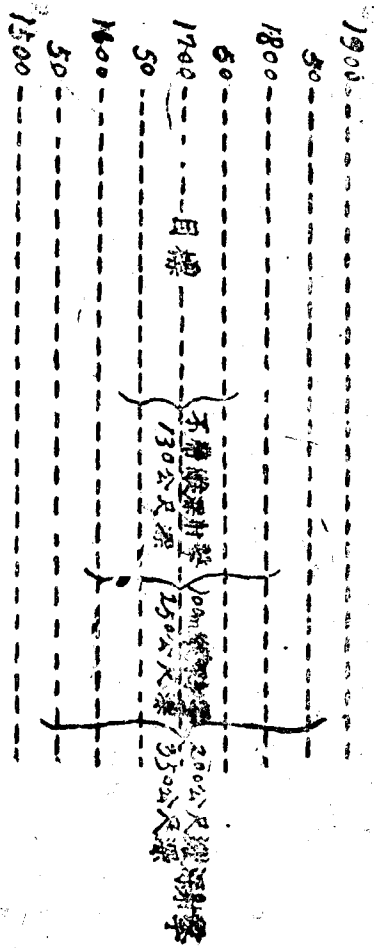 1900
50
1800
50
1700
目標
50
1600
50
1500
不帶縱深射擊
130公尺深
100m縱深射擊
250公尺深
200公尺縱深射擊
350公尺深